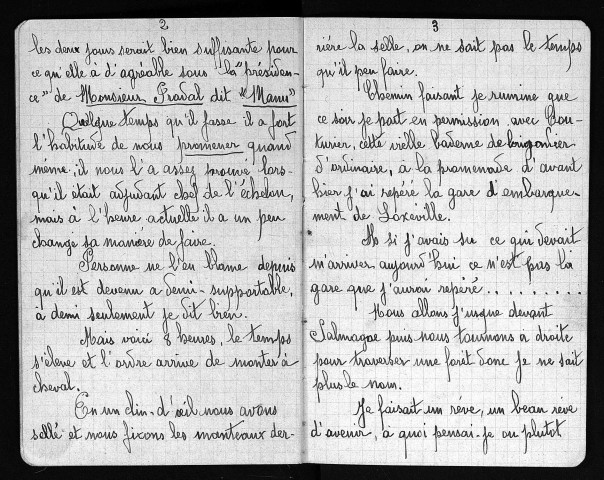 2
les deux jours serait bien suffisante pour
ce qu'elle a d'agreable sous la "présiden-
ce" de Monsieur Pradal dit "Manu"
Quelque temps qu'il fasse il a fort
l'habitude de nous promener quand
même, il nous l'a assez prouvé lors-
qu'il était adjudant chef de l'échelon,
mais à l'heure actuelle il a un peu
changé sa manière de faire.
Personne ne l'en blame depuis
qu'il est devenu a demi-supportable,
à demi seulement je dit bien.
Mais voici 8 heures, le temps
s'élève et l'ordre arrive de monter à
cheval.
En un clin-d'œil nous avons
sellé et nous fixons les manteaux der-
3
rière la selle, on ne sait pas le temps
qu'il peu faire.
Chemin faisant je rumine que
ce soir je part en permission avec Cou-
turier, cette vielle baderne de brigadier
d'ordinaire, à la promenade d'avant
hier j'ai repéré la gare d'embarque-
ment de Loxeville.
Ah si j'avais su ce qui devait
m'arriver aujourd'hui ce n'est pas la
gare que j'aurai repéré..........
Nous allons jusque devant
Salmagne puis nous tournons a droite
pour traverser une forêt donc je ne sait
plus le nom.
Je faisait un rêve, un beau rêve
d'avenir, à quoi pensai-je ou plutot